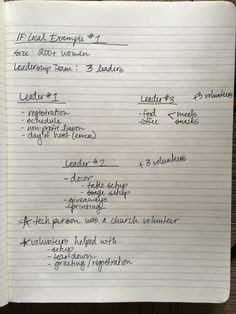 IF: Local Example #1
size: 200+ women
Leadership Team: 3 leaders
Leader #1
- registration
- schedule
- non-profit liason
- day of host (emcee)
Leader #3 +3 volunteers
- food < meals
- coffee snacks
Leader #2 +3 volunteers
- decor
- table setup
- stage setup
- giveaways
- printing
☆ tech person was a church volunteer
☆ volunteers helped with
- setup
- tear down
- greeting/registration